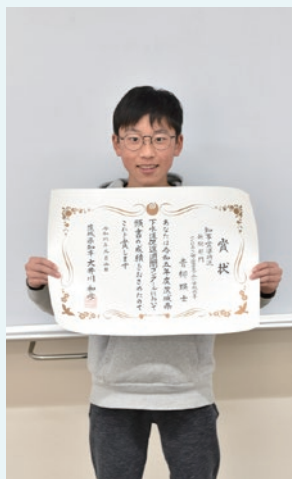 賞状
知事賞
新聞部門
雅士
あなたは令和五年度茨城県
下水道促進週間コンクールにおいて
頭書の成績をおさめたので
これを賞します
令和六年
茨城県知事 大井川和彦